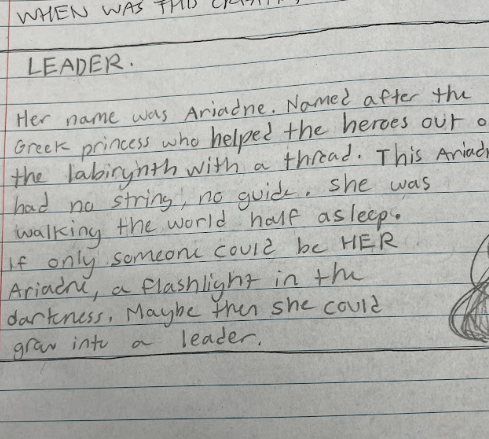 WHEN WAS THIS
LEADER.
Her name was Ariadne. Named after the
Greek princess who helped the heroes out o
the labirynth with a thread. This Ariadn
had no string, no guide. she was
walking the world half asleep.
If only someone could be HER
Ariadne, a flashlight in the
darkness. Maybe then she could
grow into a leader.